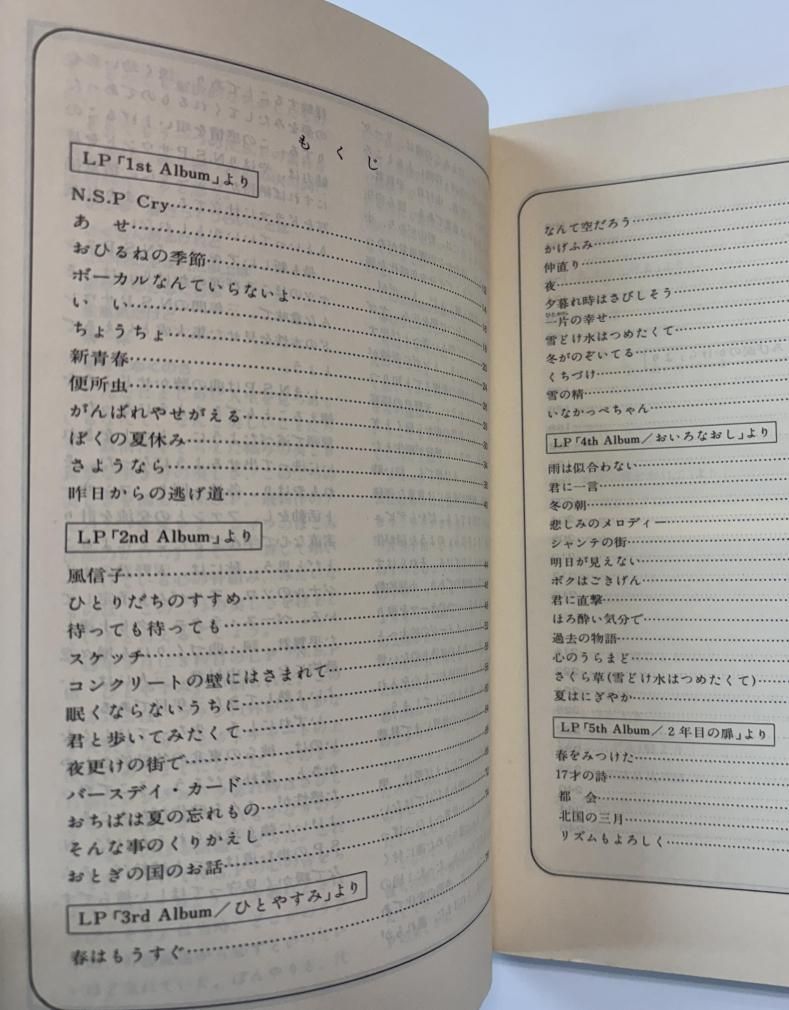 もくじ
LP「1st Album」より
N.S.P Cry
あせ
おひるねの季節
ボーカルなんていらないよ
いい
ちょうちょ
新青春
便所虫
がんばれやせがえる
ぼくの夏休み
さようなら
昨日からの逃げ道
LP「2nd Album」より
風信子
ひとりだちのすすめ
待っても待っても
スケッチ
コンクリートの壁にはさまれて
眠くならないうちに
君と歩いてみたくて
夜更けの街で
バースデイ・カード
おちばは夏の忘れもの
そんな事のくりかえし
おとぎの国のお話
LP「3rd Album/ひとやすみ」より
春はもうすぐ
なんて空だろう
かげふみ
仲直り
夜
夕暮れ時はさびしそう
一片の幸せ
雪どけ水はつめたくて
冬がのぞいてる
くちづけ
雪の精
いなかっぺちゃん
LP「4th Album/おいろなおし」より
雨は似合わない
君に一言
冬の朝
悲しみのメロディー
シャンテの街
明日が見えない
ボクはごきげん
君に直撃
ほろ酔い気分で
過去の物語
心のうらまど
さくら草(雪どけ水はつめたくて)
夏はにぎやか
LP「5th Album/2年目の扉」より
春をみつけた
17才の詩
都会
北国の三月
リズムもよろしく